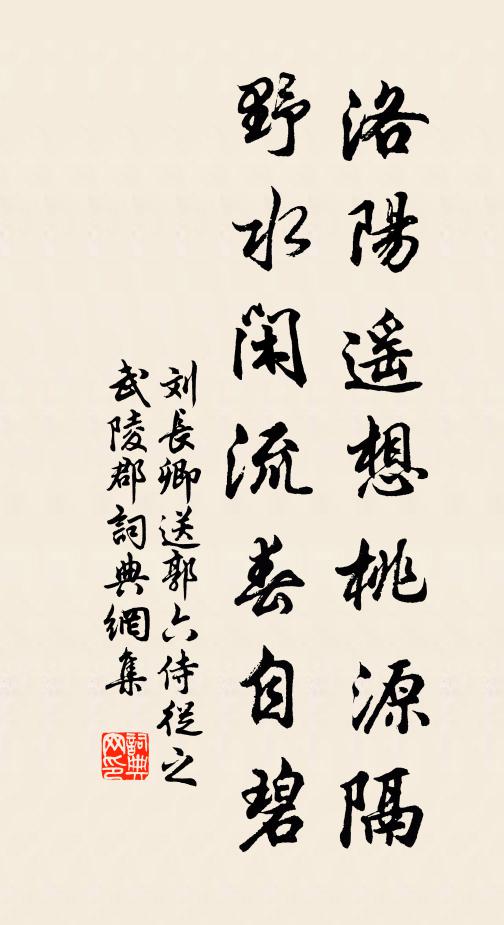 洛陽遥想桃源隔
野水閑流春自碧
刘長卿送郭六侍從之
武陵郡詞典網集
詞典
网印